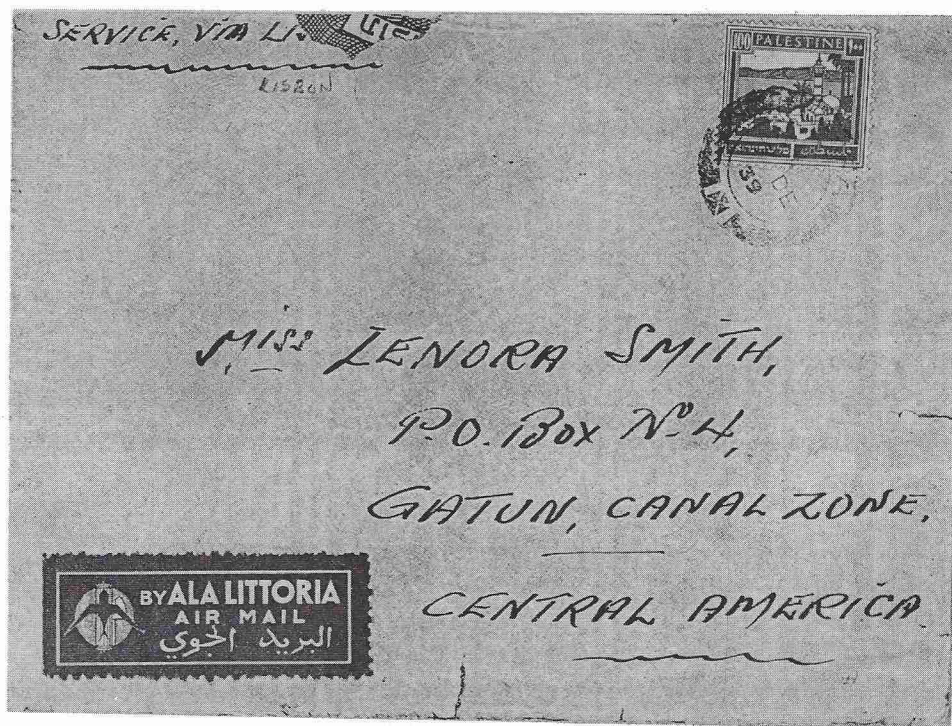 SERVICE, VIA
LISBON
100 PALESTINE ١٠٠
DE
39
Miss LENORA SMITH,
P.O. Box No 4,
GATUN, CANAL ZONE,
CENTRAL AMERICA
BY ALA LITTORIA
AIR MAIL
البريد الجوي